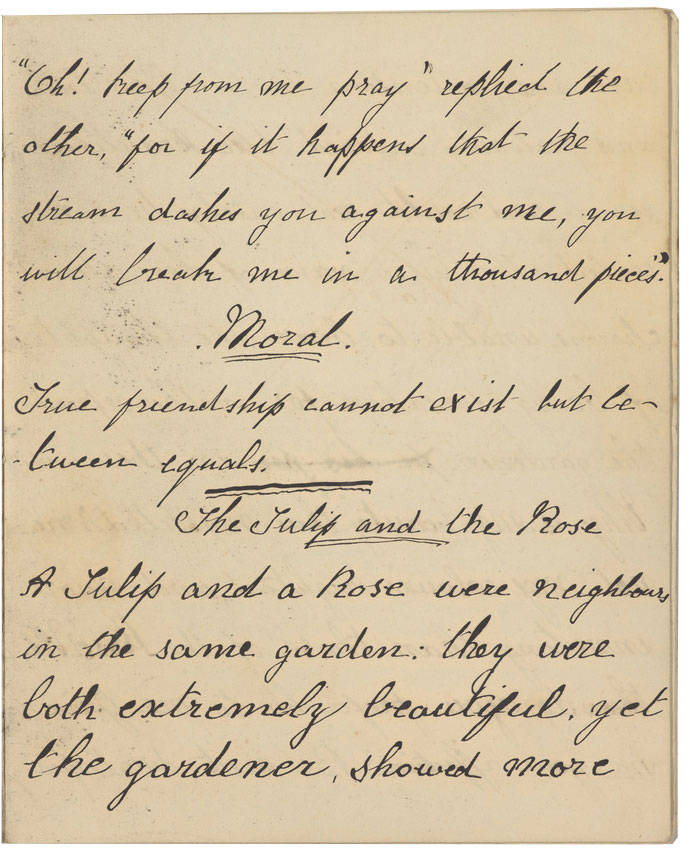 "Oh! keep from me pray" replied the
other, "for if it happens that the
stream dashes you against me, you
will break me in a thousand pieces."
. Moral.
True friendship cannot exist but be-
-tween equals.
The Tulip and the Rose
A Tulip and a Rose were neighbours
in the same garden: they were
both extremely beautiful, yet
the gardener, showed more